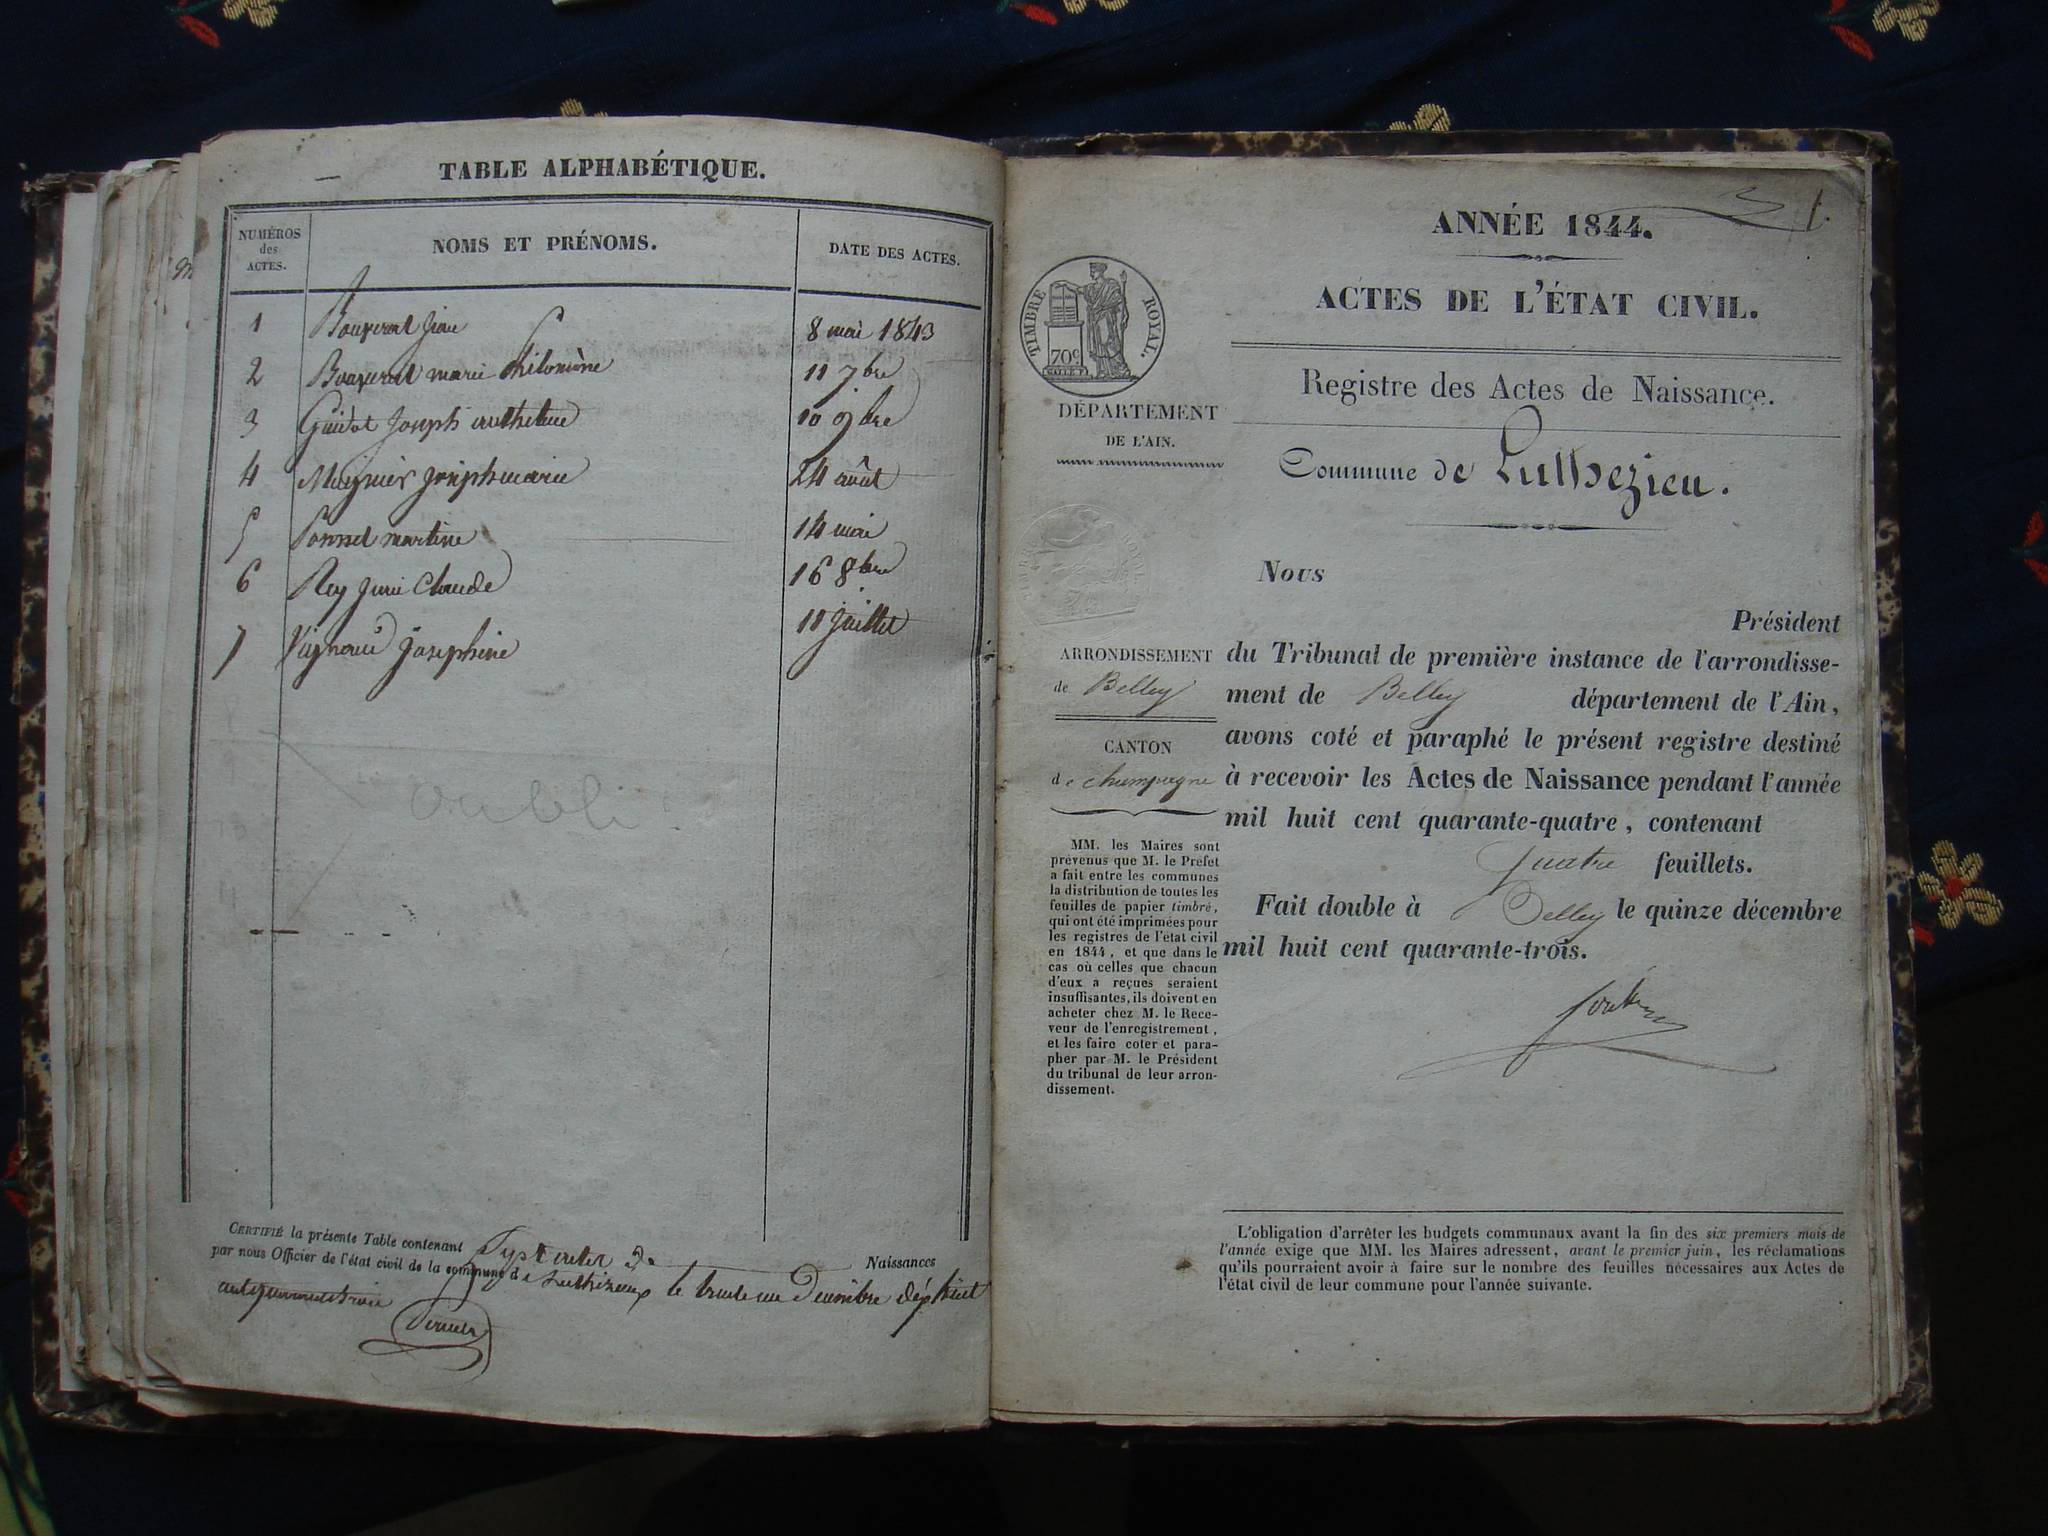 TABLE ALPHABÉTIQUE.
NUMÉROS
des
ACTES.
NOMS ET PRÉNOMS.
DATE DES ACTES.
1 8 mai 1843
2 marie Philomène 11 7bre
3 Joseph anthelme 10 9bre
4 Joseph marie 24 août
5 martine 14 mai
6 Rey Claude 16 8bre
7 Josephine 11 juillet
oublié
CERTIFIÉ la présente Table contenant Sept actes de Naissances
par nous Officier de l'état civil de la commune de Luthezieu le trente un Decembre
1.
ANNÉE 1844.
ACTES DE L'ÉTAT CIVIL.
TIMBRE ROYAL.
70c
DÉPARTEMENT
DE L'AIN.
Registre des Actes de Naissance.
Commune de Luthezieu.
Nous
Président
du Tribunal de première instance de l'arrondisse-
ment de Belley département de l'Ain,
avons coté et paraphé le présent registre destiné
à recevoir les Actes de Naissance pendant l'année
mil huit cent quarante-quatre, contenant
quatre feuillets.
Fait double à Belley le quinze décembre
mil huit cent quarante-trois.
ARRONDISSEMENT
de Belley
CANTON
de champagne
MM. les Maires sont
prévenus que M. le Préfet
a fait entre les communes
la distribution de toutes les
feuilles de papier timbré,
qui ont été imprimées pour
les registres de l'état civil
en 1844, et que dans le
cas où celles que chacun
d'eux a reçues seraient
insuffisantes, ils doivent en
acheter chez M. le Rece-
veur de l'enregistrement,
et les faire coter et para-
pher par M. le Président
du tribunal de leur arron-
dissement.
L'obligation d'arrêter les budgets communaux avant la fin des six premiers mois de
l'année exige que MM. les Maires adressent, avant le premier juin, les réclamations
qu'ils pourraient avoir à faire sur le nombre des feuilles nécessaires aux Actes de
l'état civil de leur commune pour l'année suivante.